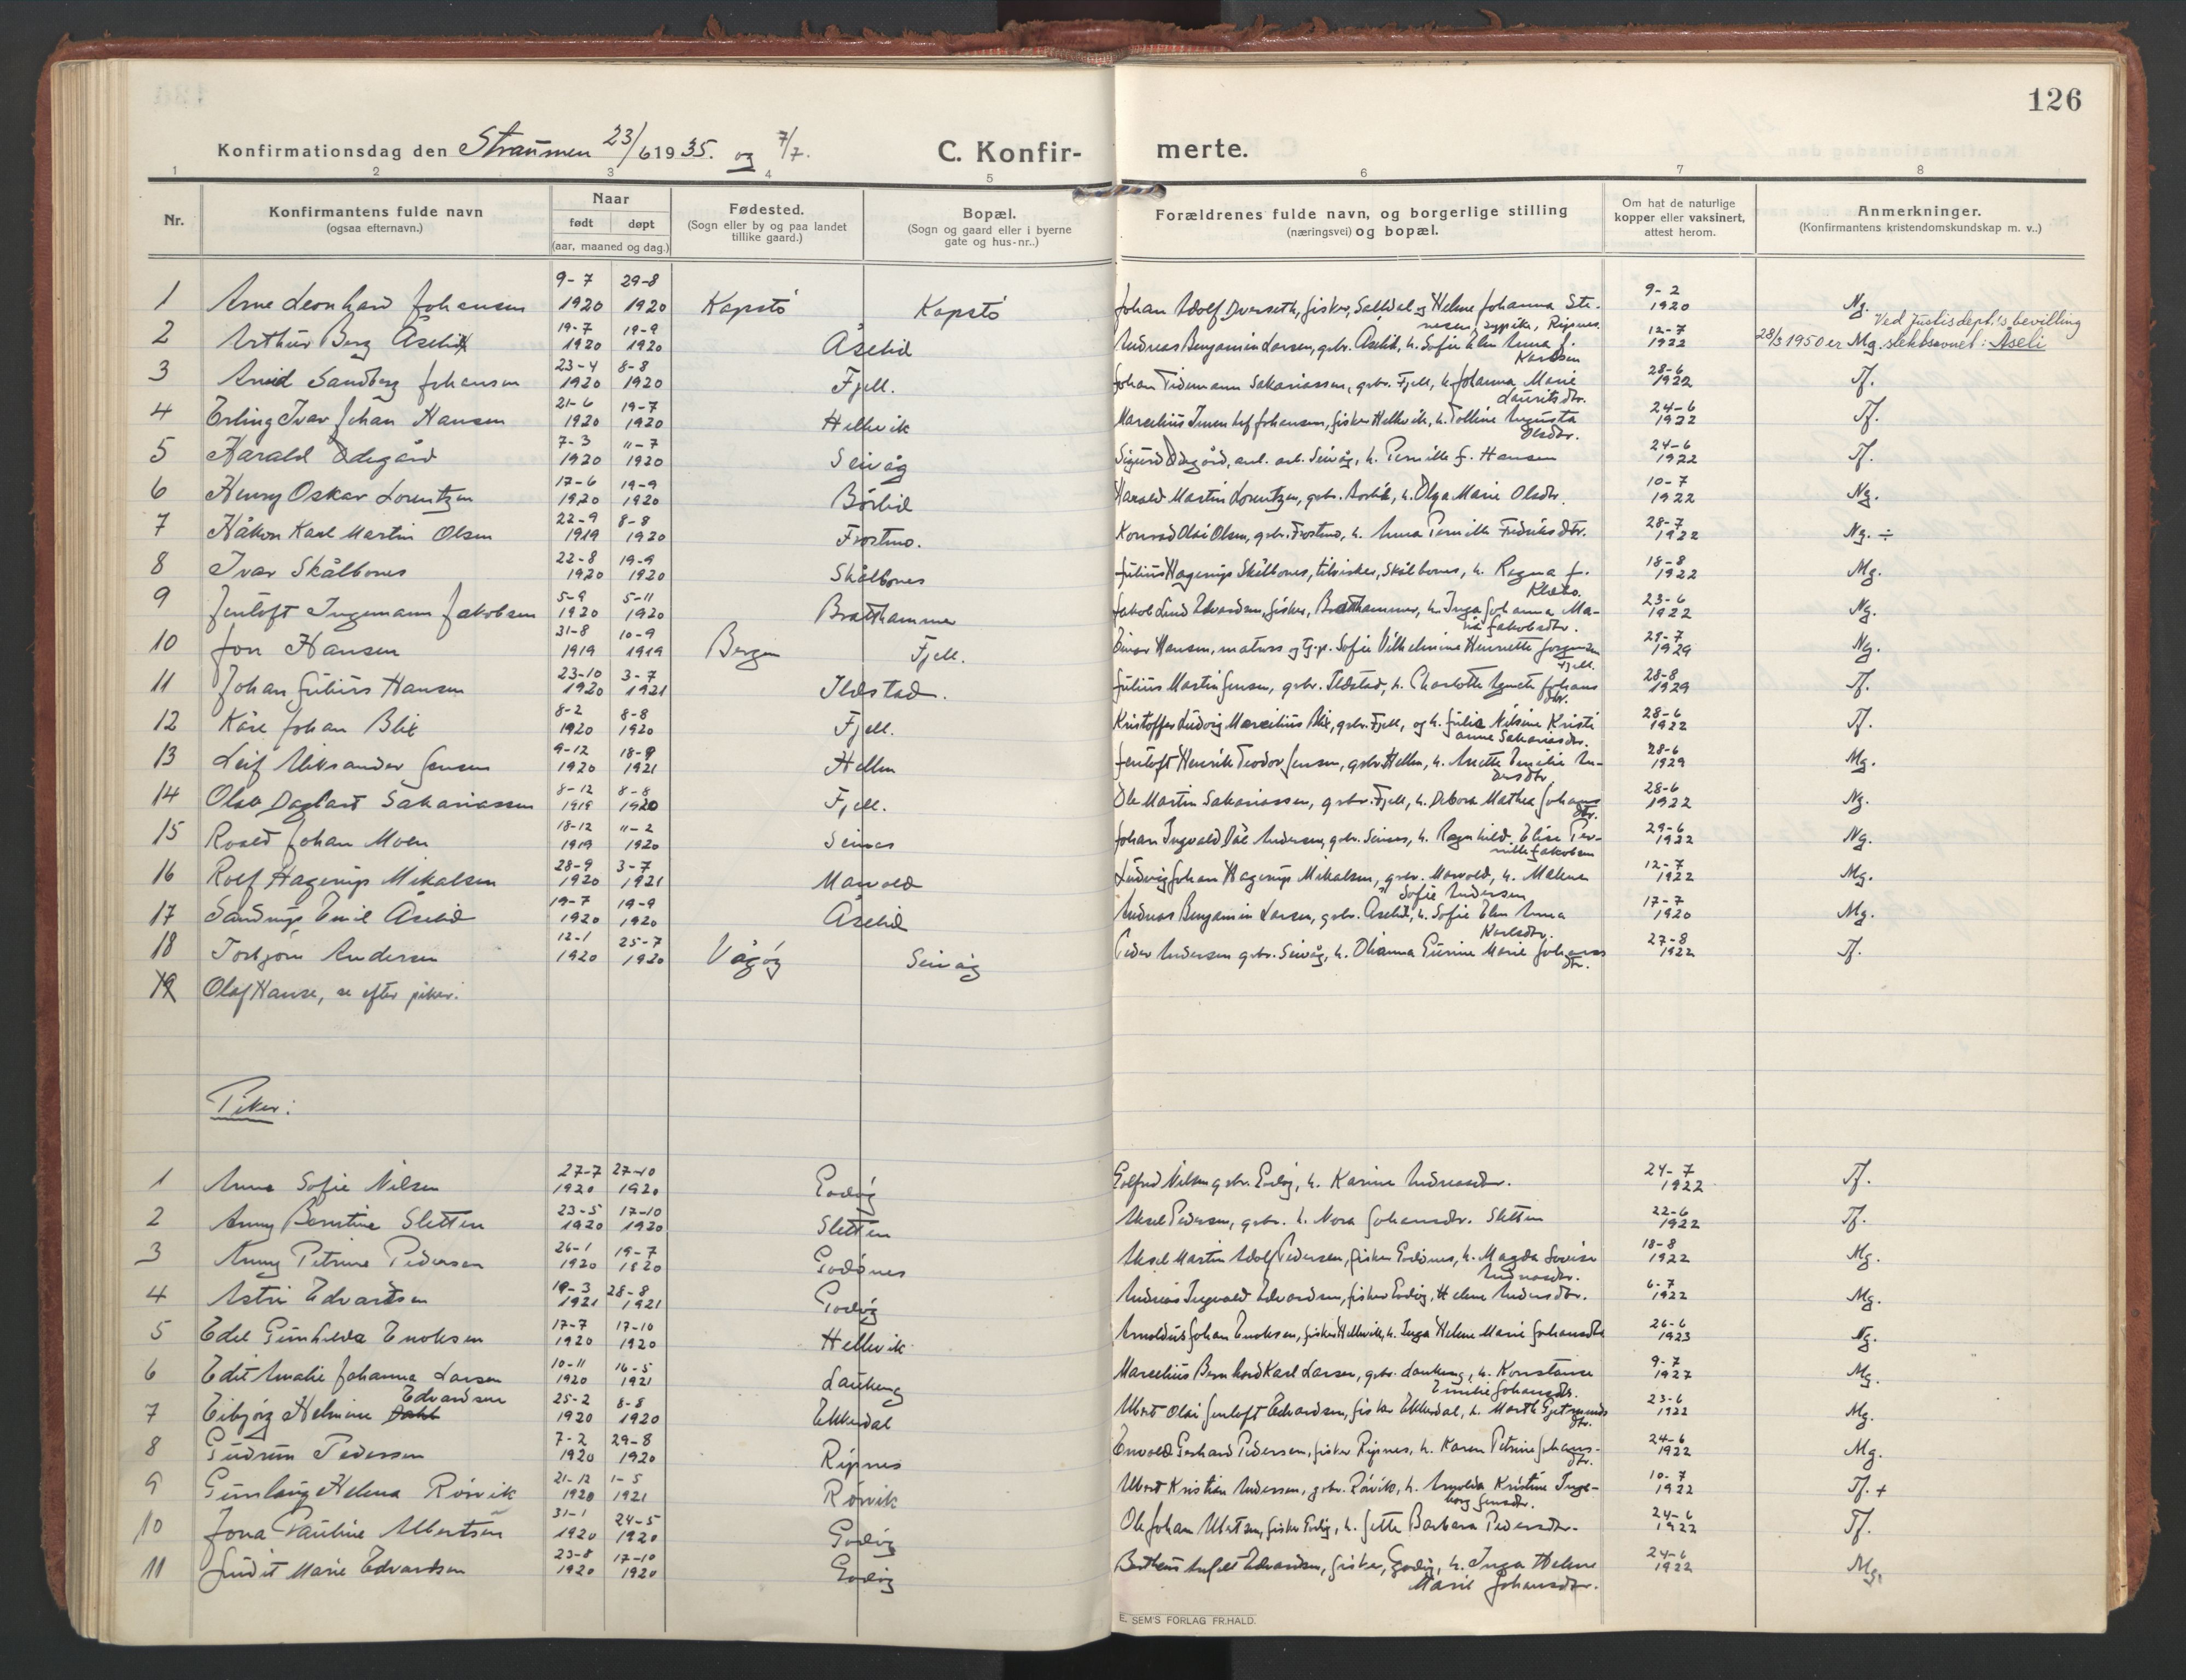 126
Konfirmationsdag den Straumen 23/6 1935. og 7/7.
C. Konfir- merte.
1 2 3 4 5 6 7 8
Nr.
Konfirmantens fulde navn
(ogsaa efternavn.)
Naar
født døpt
(aar, maaned og dag.)
Fødested.
(Sogn eller by og paa landet
tillike gaard.)
Bopæl.
(Sogn og gaard eller i byerne
gate og hus-nr..)
Forældrenes fulde navn, og borgerlige stilling
(næringsvei) og bopæl.
Om hat de naturlige
kopper eller vaksinert,
attest herom.
Anmerkninger.
(Konfirmantens kristendomskundskap m. v..)
1 Arne Leonhard Johansen 9-7 1920 29-8 1920 Kapstø Kapstø Johan Adolf fisker, Saltdal og Helene Johanna Ste-
nesen, Ripnes. 9-2 1920 Ng.
Ved Justisdept.'s bevilling
28/3 1950 er slektsnavnet: Åseli
2 Arthur Berg Åselid 19-7 1920 19-9 1920 Åselid Andreas Benjamin Larsen, gbr. Åselid, h. Sofie Elen Anna f.
Karlsen 12-7 1922 Mg.
3 Arvid Sandberg Johansen 23-4 1920 8-8 1920 Fjell. Johan Tidemann Sakariassen, gbr. Fjell, h. Johanna Marie
Lauritsdtr. 28-6 1922 Tf.
4 Erling Ivar Johan Hansen 21-6 1920 19-7 1920 Hellvik Marcelius Johansen, fisker Hellvik, h. Augusta
Olsdtr. 24-6 1922 Tf.
5 Harald Ødegård 7-3 1920 11-7 1920 Seivåg Sigurd Ødegård, Seivåg, h. Pernille f. Hansen 24-6 1922 Tf.
6 Henry Oskar Lorentzen 17-6 1920 19-9 1920 Børlid Harald Martin Lorentzen, gbr. h. Olga Marie Olsdtr. 10-7 1922 Ng.
7 Håkon Karl Martin Olsen 22-9 1919 8-8 1920 Frostmo. Konrad Olai Olsen, gbr. Frostmo, h. Anna Pernille Fredriksdtr. 28-7 1922 Ng. ÷
8 Ivar Skålbones 22-8 1920 19-9 1920 Skålbones Julius Hagerup Skålbones, Skålbones, h. Ragna f.
18-8 1922 Mg.
9 Jentoft Ingemann Jakobsen 5-9 1920 5-11 1920 Bratthammer Jakob Lind Edvardsen, fisker, Bratthammer, h. Inga Johanna Ma-
ria Jakobsdtr. 23-6 1922 Ng.
10 Jon Hansen 31-8 1919 10-9 1919 Bergen Fjell. Einar Hansen, og Sofie Vilhelmine Henriette Jørgensen
Fjell. 29-7 1929 Ng.
11 Johan Julius Hansen 23-10 1920 3-7 1921 Ildstad. Julius Martin Jensen, gbr. Ildstad, h. Charlotte Agnete Johans
dtr. 28-8 1929 Tf.
12 Kåre Johan Blix 8-2 1920 8-8 1920 Fjell. Kristoffer Ludvig Marcelius Blix, gbr. Fjell, og h. Julie Nilsine Kristi
anne Sakariasdtr. 28-6 1922 Tf.
13 Leif Aleksander Jensen 9-12 1920 18-9 1921 Hellen Jentoft Henrik Teodor Jensen, gbr. Hellen, h. Anette Emilie An-
dersdtr. 28-6 1929 Mg.
14 Olav Dagfart Sakariassen 8-12 1919 8-8 1920 Fjell. Ole Martin Sakariassen, gbr. Fjell, h. Debora Mathea Johans
dtr. 28-6 1922 Ng.
15 Roald Johan Moen 18-12 1919 11-2 1920 Seines Johan Ingvald Dål Andersen, gbr. Seines, h. Ragnhild Elise Per-
nille Jakobsen 29-6 1922 Ng.
16 Rolf Hagerup Mikalsen 28-9 1920 3-7 1921 Marvold Ludvig Johan Hagerup Mikalsen, gbr. Marvold, h. Malene
Sofie Andersen 12-7 1922 Mg.
17 Sandrup Emil Åselid 19-7 1920 19-9 1920 Åselid Andreas Benjamin Larsen, gbr. Åselid, h. Sofie Elen Anna
Karlsdtr. 17-7 1920 Mg.
18 Torbjørn Andersen 12-1 1920 25-7 1920 Vågøy Seivåg Peder Andersen gbr. Seivåg, h. Marie Johans
dtr. 27-8 1922 Tf.
19 Olaf Hanse, se efter piker.
Piker:
1 Anna Sofie Nilsen 27-7 1920 27-10 1920 Godøy Nilsen gbr. Godøy, h. Karine Andreasdtr. 24-7 1922 Tf.
2 Anny Berntine Sletten 23-5 1920 17-10 1920 Sletten Aksel Pedersen, gbr. h. Nora Johansdtr. Sletten 22-6 1922 Tf.
3 Anny Petrine Pedersen 26-1 1920 19-7 1820 Godønes Aksel Martin Adolf Pedersen, fisker Godønes, h. Magda Lovise
Andreasdtr. 18-8 1922 Mg.
4 Astri Edvardsen 19-3 1921 28-8 1921 Godøy Andreas Ingvald Edvardsen, fisker Godøy, Helene Andersdtr. 6-7 1922 Mg.
5 Edel Gunhilda Enoksen 17-7 1920 17-10 1920 Hellvik Arnoldus Johan Enoksen, fisker Hellvik, h. Inga Helene Marie Johansdtr 26-6 1923 Ng.
6 Edit Amalie Johanna Larsen 10-11 1920 16-5 1921 Laukeng Marcelius Bernhard Karl Larsen, gbr. Laukeng, h. Konstanse
Emilie Johansdtr. 9-7 1927 Mg.
7 Eibjørg Helmine Dahl Edvardsen 25-2 1920 8-8 1920 Ekkerdal Albert Olai Jentoft Edvardsen, fisker Ekkerdal, h. Marth
dtr. 23-6 1922 Mg.
8 Gudrun Pedersen 7-2 1920 29-8 1920 Ripnes Envold Gerhard Pedersen, fisker Ripnes, h. Karen Petrine Johans-
dtr. 24-6 1922 Mg.
9 Gunlaug Helena Rørvik 21-12 1920 1-5 1921 Rørvik Albert Kristian Andersen, gbr. Rørvik, h. Arnolda Kristine Inge-
borg Jensdtr. 10-7 1922 Tf. +
10 Jona Pauline Albertsen 31-1 1920 24-5 1920 Godøy Ole Johan Albertsen, fisker Godøy, h. Jette Barbara Pedersdtr. 24-6 1922 Tf.
11 Judit Marie Edvardsen 23-8 1920 17-10 1920 Godøy Edvardsen, fisker, Godøy, h. Inga Helene
Marie Johansdtr. 24-6 1922 Mg.
E. SEM'S FORLAG FR.HALD.